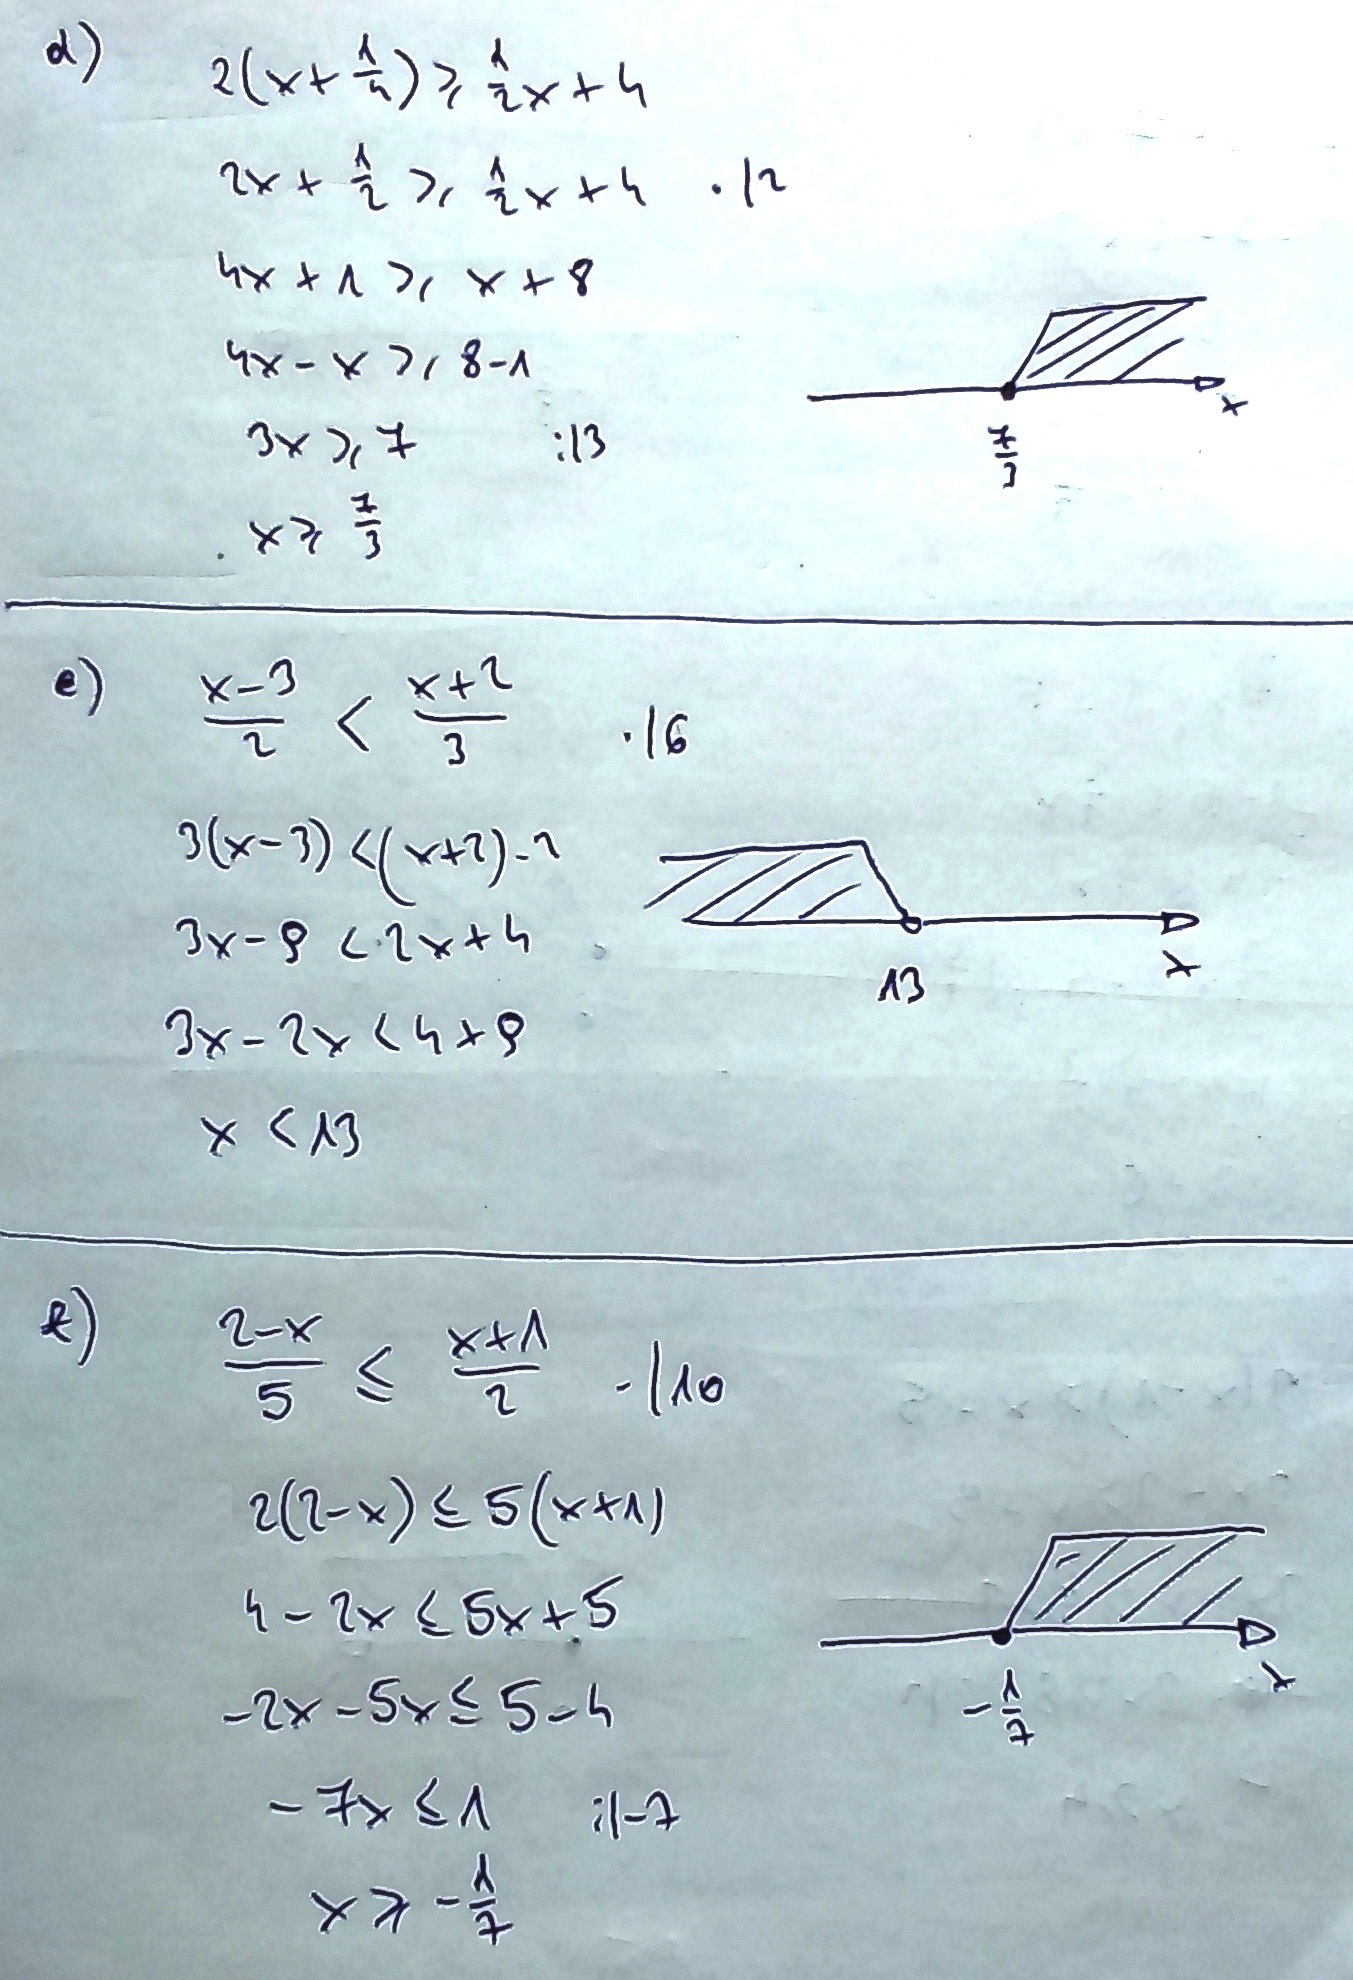 d) 2(x+1/4) ⩾ 1/2x+4
2x+1/2 ⩾ 1/2x+4 ·|2
4x+1 ⩾ x+8
4x-x ⩾ 8-1
3x ⩾ 7 :|3
x ⩾ 7/3
x
7/3
e) x-3/2 < x+2/3 ·|6
3(x-3) <(x+2)·2
3x-9 < 2x+4
3x-2x < 4+9
x < 13
x
13
f) 2-x/5 ≤ x+1/2 ·|10
2(2-x) ≤ 5(x+1)
4-2x ≤ 5x+5
-2x-5x ≤ 5-4
-7x ≤ 1 :|-7
x ⩾ -1/7
x
-1/7